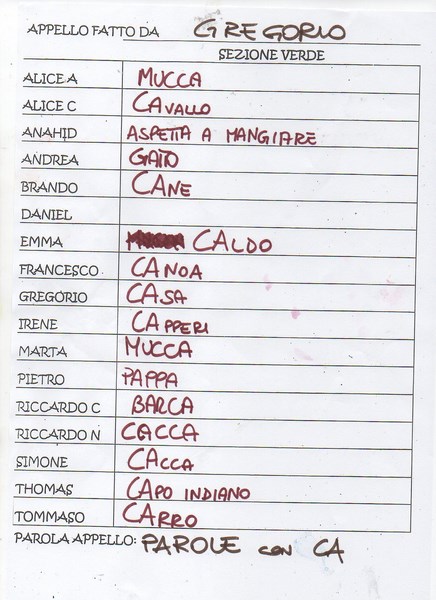 APPELLO FATTO DA GREGORIO
SEZIONE VERDE
ALICE A MUCCA
ALICE C CAVALLO
ANAHID ASPETTA A MANGIARE
ANDREA GATTO
BRANDO CANE
DANIEL
EMMA CALDO
FRANCESCO CANOA
GREGORIO CASA
IRENE CAPPERI
MARTA MUCCA
PIETRO PAPPA
RICCARDO C BARCA
RICCARDO N CACCA
SIMONE CACCA
THOMAS CAPO INDIANO
TOMMASO CARRO
PAROLA APPELLO: PAROLE con CA